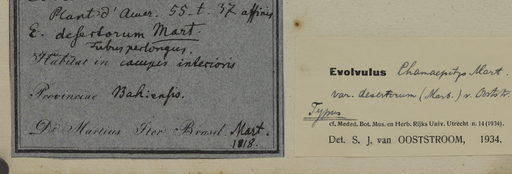 Plant. d'Amer. 55. t. 37 affinis
E. desertorum Mart.
Tubus perlongus.
Habitat in campis interioris
Provinciae Bahiensis.
Dr. Martius Iter Brasil. Mart.
1818.
Evolvulus Chamaepitys Mart.
var. desertorum (Mart.) v. Ooststr.
Typus
cf. Meded. Bot. Mus. en Herb. Rijks Univ. Utrecht n. 14 (1934).
Det. S. J. van OOSTSTROOM, 1934.